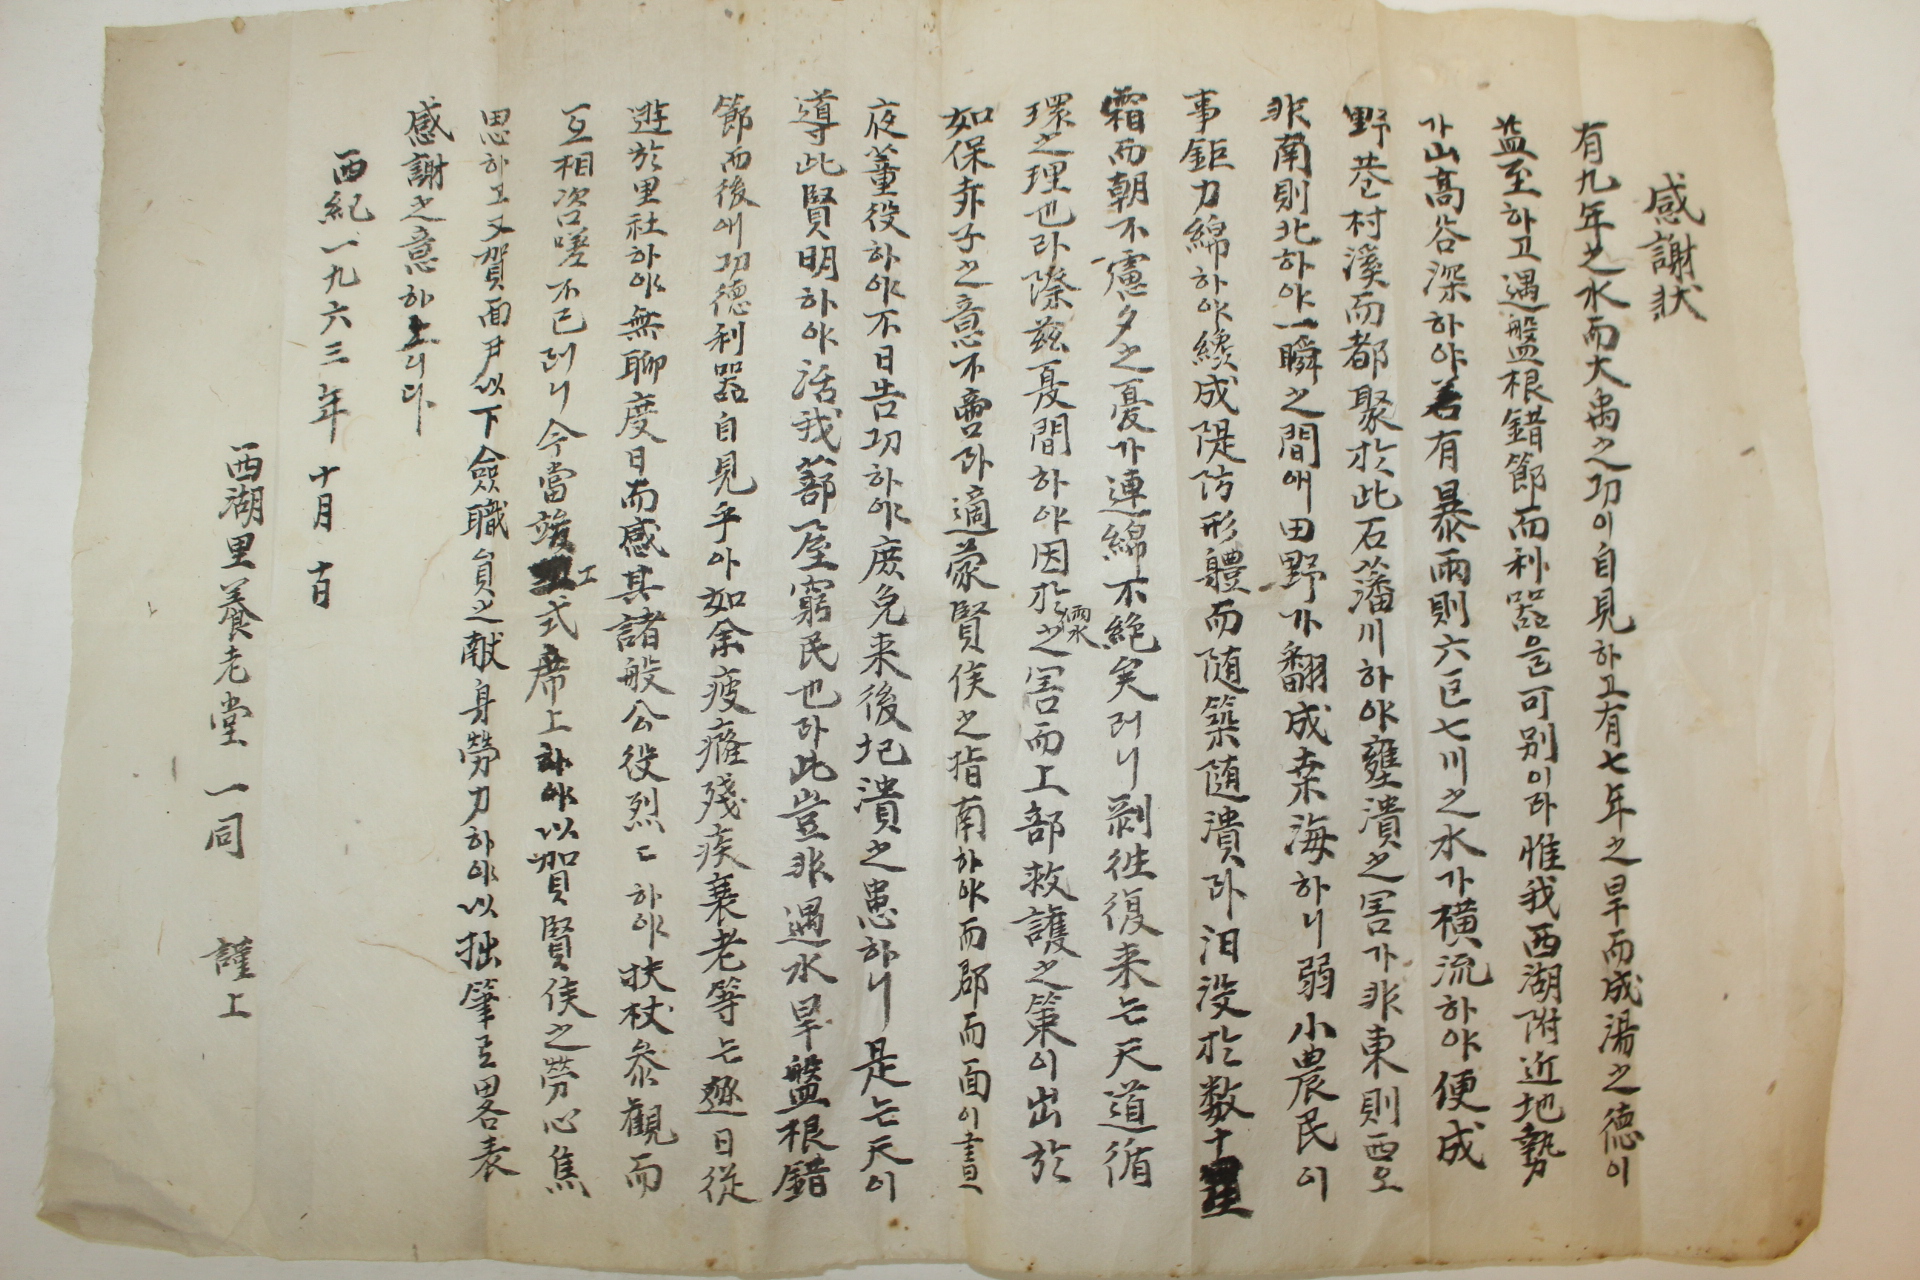 感謝狀
有九年之水而大禹之功이自見하고有七年之旱而成湯之德이
益至하고遇盤根錯節而利器을可別이라惟我西湖附近地勢
가山高谷深하야若有暴雨則六巨七川之水가橫流하야便成
野巷村溪而都聚於此石藩川하야壅潰之害가非東則西오
非南則北하야一瞬之間에田野가翻成桒海하니弱小農民이
事鉅力綿하야纔成隄防形體而随築随潰라汨没於数十
霜而朝不慮夕之憂가連綿不絶矣러니剝徃復来는天道循
環之理也라際兹夏間하야因於雨水之害而上部救護之策이出於
如保赤子之意不啻라適蒙賢侯之指南하야而郡而面이晝
夜董役하야不日告功하야庶免来後圮潰之患하니是는天이
導此賢明하야活我蔀屋窮民也라此豈非遇水旱盤根錯
節而後에功德利器自見乎아如余疲癃殘疾衰老等는逐日從
遊於里社하야無聊度日而感其諸般公役烈〻하야扶杖參觀而
互相咨嗟不已러니今當竣工式席上하야以賀賢侯之勞心焦
思하고又賀面尹以下僉職員之献身勞力하야以拙筆로畧表
感謝之意하노니다
西紀一九六三年十月 日
西湖里養老堂一同 謹上